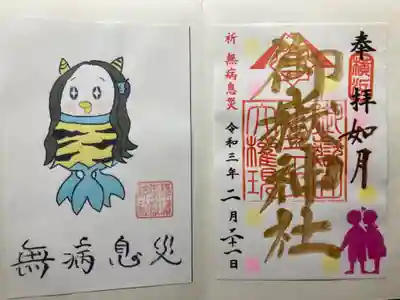 無病息災
奉拝
如月
御嶽神社
祈 無病息災
令和三年二月二十一日